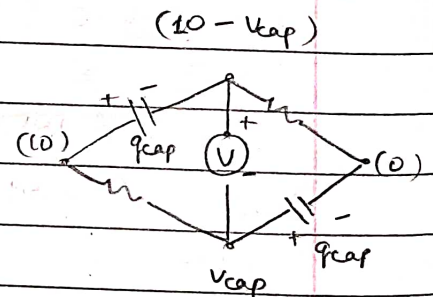 (10 - Vcap)
+ -
+
(10) qcap V (0)
-
-
+ qcap
Vcap